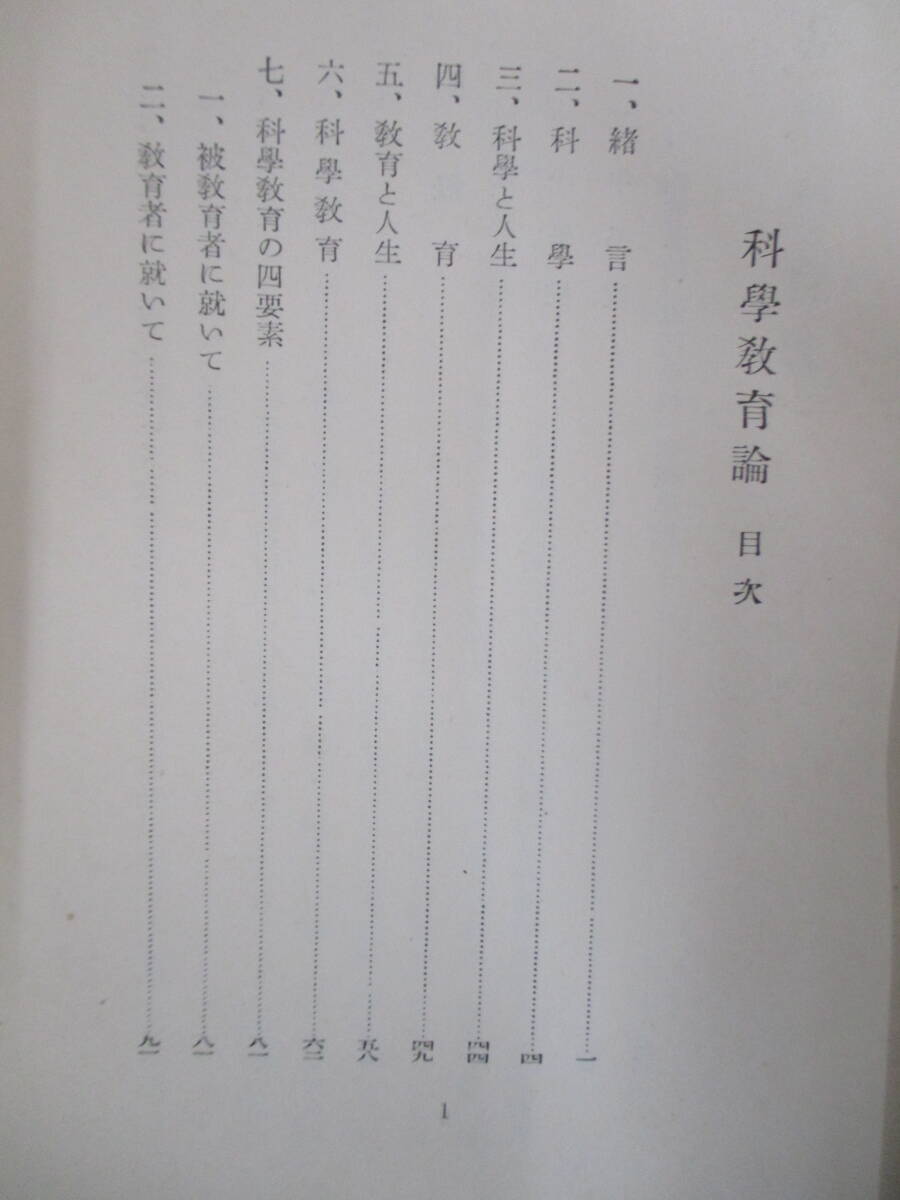 科學敎育論 目次
一、緖言……一
二、科學……四
三、科學と人生……四四
四、敎育……四九
五、敎育と人生……五八
六、科學敎育……六二
七、科學敎育の四要素……八一
一、被敎育者に就いて……八一
二、敎育者に就いて……九一
1